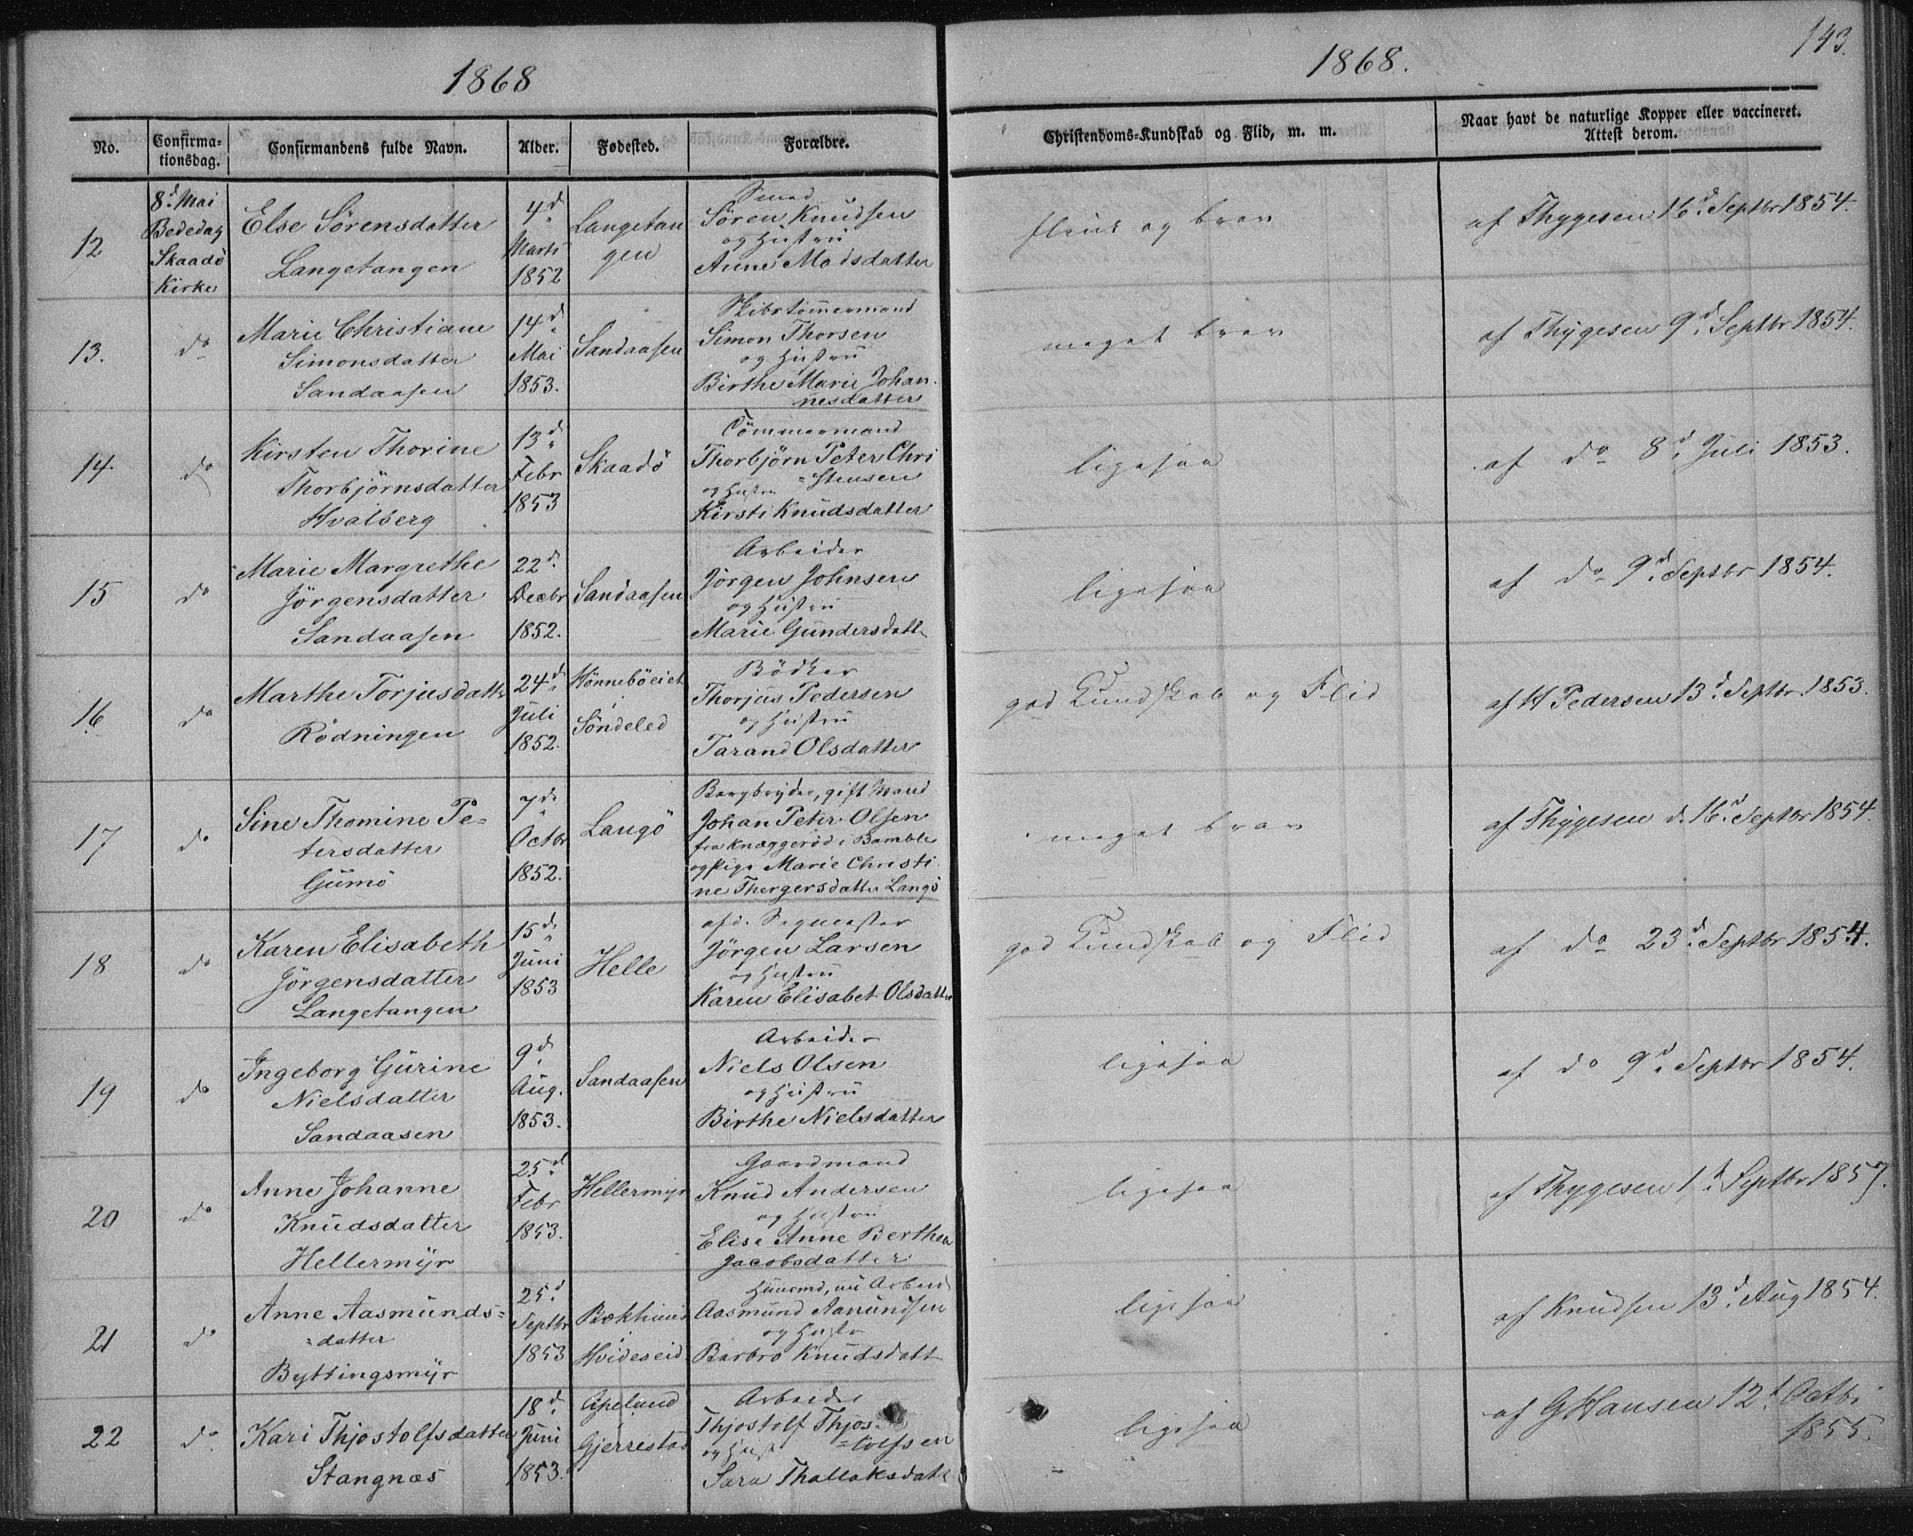 1868
1868.
143.
No.
Confirma-
tionsdag.
Confirmandens fulde Navn.
Alder.
Fødested.
Forældre.
Christendoms-Kundskab og Flid, m. m.
Naar havt de naturlige Kopper eller vaccineret.
Attest derom.
12
8d. Mai
Bededag
Skaadö
Kirke
Else Sörensdatter
Langetangen
4d.
Marts
1852
Langetan
gen
Smed
Sören Knudsen
og Hustru
Anne Madsdatter
flink og brav
af Thygesen 16d. Septbr 1854.
13.
do
Marie Christiane
Simonsdatter
Sandaasen
14d.
Mai
1853.
Sandaasen
Skibstömmermand
Simon Thorsen
og Hustru
Birthe Marie Johan-
nesdatter
meget brav
af Thygesen 9d. Septbr 1854.
14.
do
Kirsten Thorine
Thorbjörnsdatter
Hvalberg
13d.
Febr
1853
Skaadö
Tömmermand
Thorbjörn Peter Chri
=stensen
og Hustru
Kirsti Knudsdatter
ligesaa
af do 8d. Juli 1853.
15
do
Marie Margrethe
Jörgensdatter
Sandaasen
22d.
Decbr
1852.
Sandaasen
Arbeider
Jörgen Johnsen
og Hustru
Marie Gundersdatt
ligesaa
af do 9d. Septbr 1854.
16
do
Marthe Torjusdattr
Rödningen
24d.
Juli
1852.
Hönneböeiet
i
Söndeled
Bödker
Thorjus Pedersen
og Hustru
Tarand Olsdatter
god Kundskab og Flid
af H Pedersen 13d. Septbr. 1853.
17
do
Sine Thomine Pe-
tersdatter
Gumö
7d.
Octbr
1852.
Langö
Bergbryder, gift Mand
Johan Peter Olsen
fra Knæggeröd i Bamble
og Pige Marie Christi
ne Thergersdatter Langö
meget brav
af Thygesen d. 16d. Septbr 1854.
18
do
Karen Elisabeth
Jörgensdatter
Langetangen
15d.
Juni
1853
Helle
afd. Sagmester
Jörgen Larsen
og Hustru
Karen Elisabet Olsdatter
god Kundskab og Flid
af do 23d. Septbr 1854.
19
do
Ingeborg Gurine
Nielsdatter
Sandaasen
9d.
Aug.
1853.
Sandaasen
Arbeider
Niels Olsen
og Hustru
Birthe Nielsdatter
ligesaa
af do 9d. Septbr 1854.
20
do
Anne Johanne
Knudsdatter
Hellermyr
25d.
Febr
1853.
Hellermyr
Gaardmand
Knud Andersen
og Hustru
Elise Anne Berthea
Jacobsdatter
ligesaa
af Thygesen 1d. Septbr 1857.
21
do
Anne Aasmunds=
=datter
Byttingsmyr
25d.
Septbr
1853
i
Hvideseid
Huusmd, nu Arbeid
Aasmund Aanundsen
og Hustr
Barbro Knudsdatt
ligesaa
af Knudsen 13d. Aug 1854.
22
do
Kari Thjostolfsdatter
Stangnæs
18d.
Juni
1853.
Apelund
Gjerrestad
Arbeider
Thjostolf Thjos-
=tolfsen
og Hust
Sara Thallaksdatt
ligesaa
af G Hansen 12t Octbr
1855.